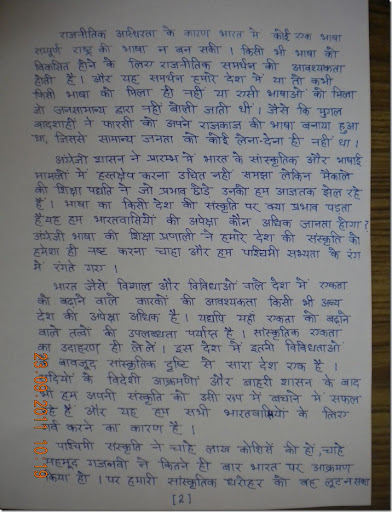 राजनीतिक अस्थिरता के कारण भारत में कोई एक भाषा
सम्पूर्ण राष्ट्र की भाषा न बन सकी । किसी भी भाषा को
विकसित होने के लिए राजनीतिक समर्थन की आवश्यकता
होती है । और यह समर्थन हमारे देश में या तो कभी
किसी भाषा को मिला ही नहीं या ऐसी भाषाओं को मिला
जो जनसामान्य द्वारा नहीं बोली जाती थी । जैसे कि मुगल
बादशाहों ने फारसी को अपने राजकाज की भाषा बनाया हुआ
था, जिससे सामान्य जनता को कोई लेना-देना ही नहीं था ।
अंग्रेजी शासन ने प्रारम्भ में भारत के सांस्कृतिक और भाषाई
मामलों में हस्तक्षेप करना उचित नहीं समझा लेकिन मैकाले
की शिक्षा पद्धति ने जो प्रभाव छोड़े उनको हम आजतक झेल रहे
हैं । भाषा का किसी देश की संस्कृति पर क्या प्रभाव पड़ता
है यह हम भारतवासियों की अपेक्षा कौन अधिक जानता होगा ?
अंग्रेजी भाषा की शिक्षा प्रणाली ने हमारे देश की संस्कृति को
हमेशा ही नष्ट करना चाहा और हम पाश्चिमी सभ्यता के रंग
में रंगते गए ।
भारत जैसे विशाल और विविधताओं वाले देश में एकता
को बढ़ाने वाले कारकों की आवश्यकता किसी भी अन्य
देश की अपेक्षा अधिक है । यद्यपि यहाँ एकता को बढ़ाने
वाले तत्वों की उपलब्धता पर्याप्त है । सांस्कृतिक एकता
का उदाहरण ही ले लें । इस देश में इतनी विविधताओं
बावजूद सांस्कृतिक दृष्टि से सारा देश एक है ।
सदियों के विदेशी आक्रमणों और बाहरी शासन के बाद
भी हम अपनी संस्कृति को उसी रूप में बचाने में सफल
रहे हैं और यह हम सभी भारतवासियों के लिए
गर्व करने का कारण है ।
पाश्चिमी संस्कृति ने चाहे लाख कोशिशें की हों, चाहे
महमूद गजनवी ने कितने ही बार भारत पर आक्रमण
किया हो । पर हमारी सांस्कृतिक धरोहर को वह लूट न सका
[2]